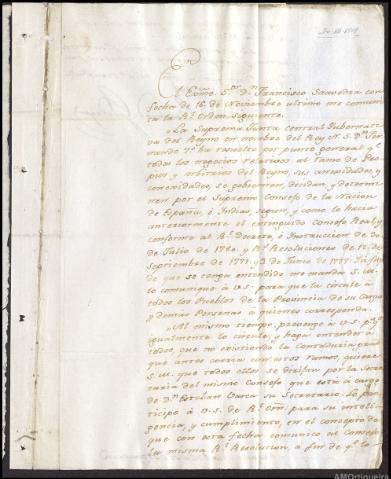 El Exmo. Sor. Dn. Francisco Saavedra con
fecha de 16 de Noviembre ultimo me comuni
ca la Rl. Orden siguiente.
"La Suprema Junta central Gubernati
va del Reyno en nombre del Rey N. S. Dn. Fer
nando 7º ha resuelto por punto general qe.
todos los negocios relativos al ramo de Pro
pios y arbitrios del Reyno, sus
se gobiernen, decidan, y determi
nen por el Supremo Consejo de la Nacion
de España, é Indias, segun, y como lo hacia
anteriormente el extinguido Consejo Real, y
conforme al Rl. Decreto, é Instruccion de 30
de Julio de 1760. y Rs. Resoluciones de 12 de
Septiembre de 1771. y 3 de Junio de 1777. Lo
que se tenga entendido me manda S. M.
lo comunique á V.S. para que la circule á
todos los Pueblos de la Provincia de su Cargo
y demás Personas á quienes corresponda.
"Al mismo tiempo prevengo á V.S. pa. qe.
igualmente lo circule, y haga entender á
todos, que no existiendo la Contaduria
que antes corria con estos ramos, quiere
S. M. que todos ellos se dirijan por la Secre
taria del mismo Consejo que está á cargo
de Dn. Esteban Varea su Secretario. Lo par
ticipo á V.S. de Rl. orn. para su inteli
gencia, y cumplimiento, en el concepto de
que con esta fecha comunico al Consejo
la misma Rl. Resolucion, á fin de qe. la
AMOrtigueira